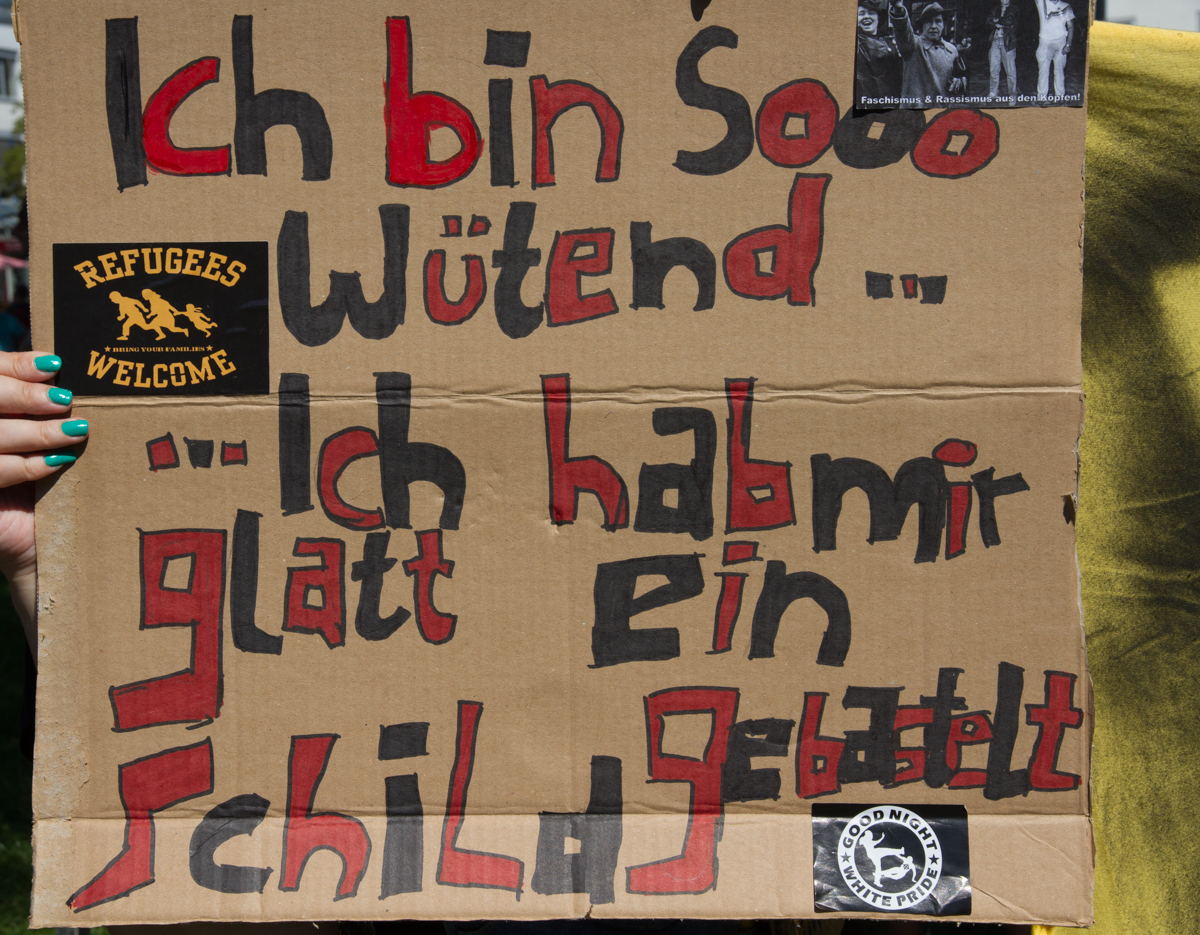 Ich bin Sooo
Faschismus & Rassismus aus den Köpfen!
Wütend ...
REFUGEES
BRING YOUR FAMILIES
WELCOME
... Ich hab mir
glatt ein
Schild gebastelt
GOOD NIGHT
WHITE PRIDE